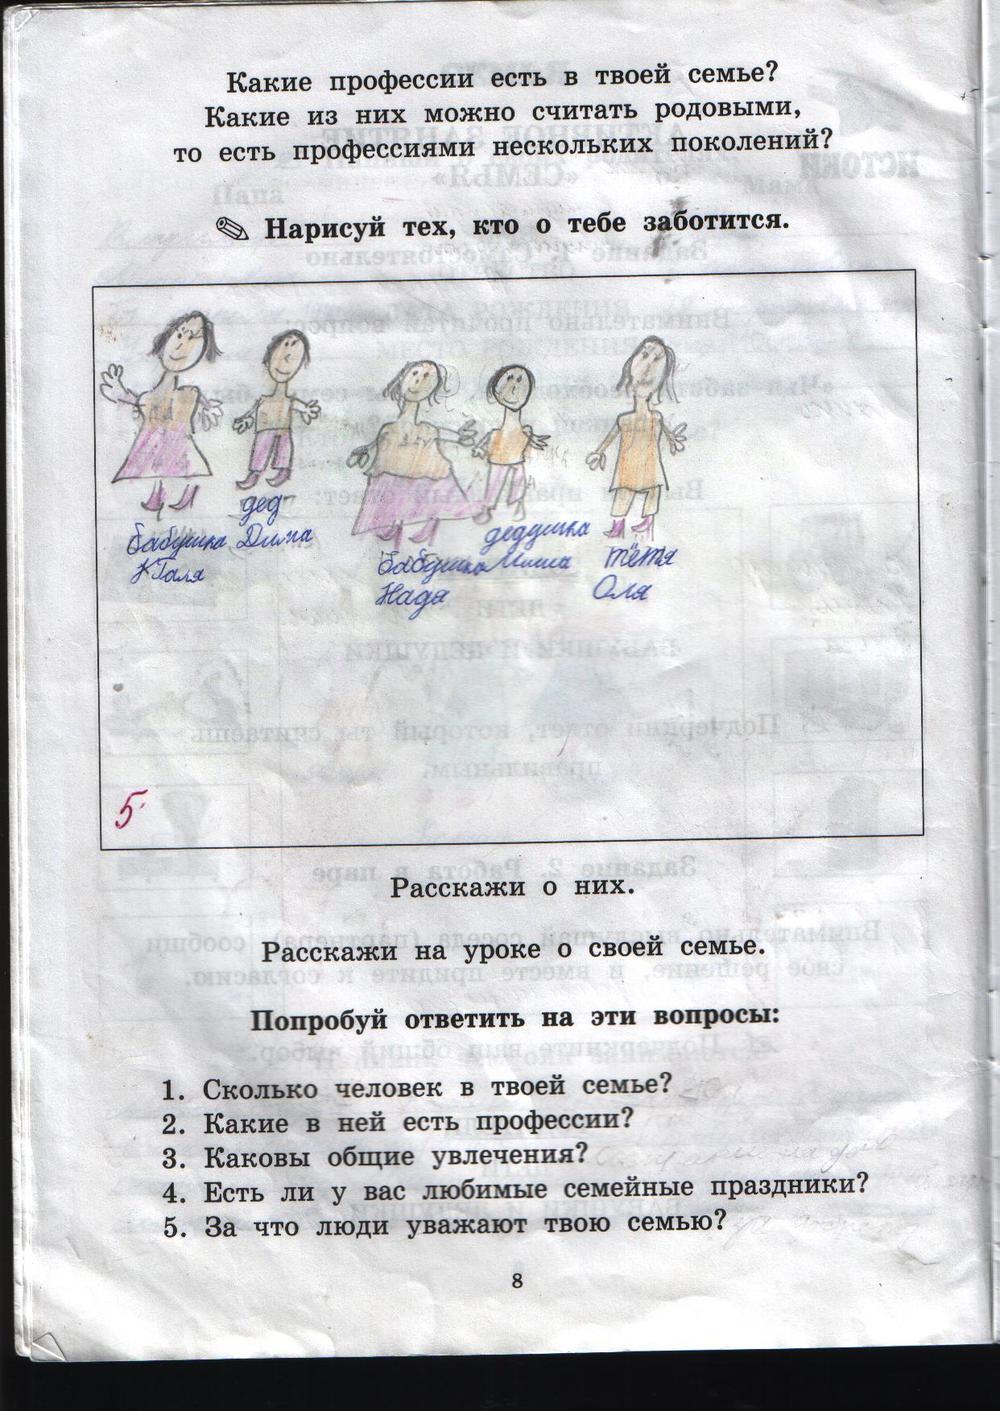 Какие профессии есть в твоей семье?
Какие из них можно считать родовыми,
то есть профессиями нескольких поколений?
Нарисуй тех, кто о тебе заботится.
бабушка Галя
дед Дима
бабушка Надя
дедушка Миша
тётя Оля
5
Расскажи о них.
Расскажи на уроке о своей семье.
Попробуй ответить на эти вопросы:
1. Сколько человек в твоей семье?
2. Какие в ней есть профессии?
3. Каковы общие увлечения?
4. Есть ли у вас любимые семейные праздники?
5. За что люди уважают твою семью?
8